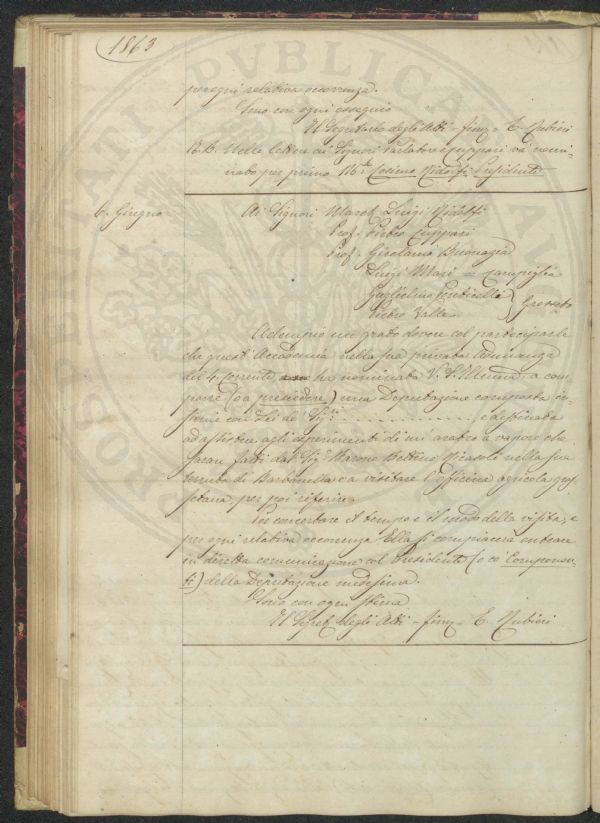 1863
per ogni relativa occorrenza.
Sono con ogni ossequio
Il Segretario degli Atti - firm. E. Rubieri
N.B. Nella lettera ai Signori Parlatore e Cuppari va nomi-
nato per primo M.se Cosimo Ridolfi Presidente
6. Giugno
Ai Signori March. Luigi Ridolfi
Prof. Pietro Cuppari
Prof. Girolamo Buonazia
Luigi Masi = Campiglia
Guglielmo Ponticelli
Pietro Valle
Grosseto
Adempio un grato dovere col parteciparle
che quest'Accademia nella sua privata adunanza
del 4 corrente ha nominata V. S. Illma. a com-
porre (o a presiedere) una Deputazione composta in-
sieme con Lei de' Sigri. . . . . . . . . . . e destinata
ad assistere agli esperimenti di un aratro a vapore che
saran fatti dal Sig. Barone Bettino Ricasoli nella sua
tenuta di Barbanella e a visitare l'officina agricola gros-
setana, per poi riferire.
Per concertare il tempo e il modo della visita, e
per ogni relativa occorrenza Ella si compiacerà entrare
in diretta comunicazione col Presidente (o co' Componen-
ti) della Deputazione medesima.
Sono con ogni stima
Il Segret. degli Atti - firm. E. Rubieri